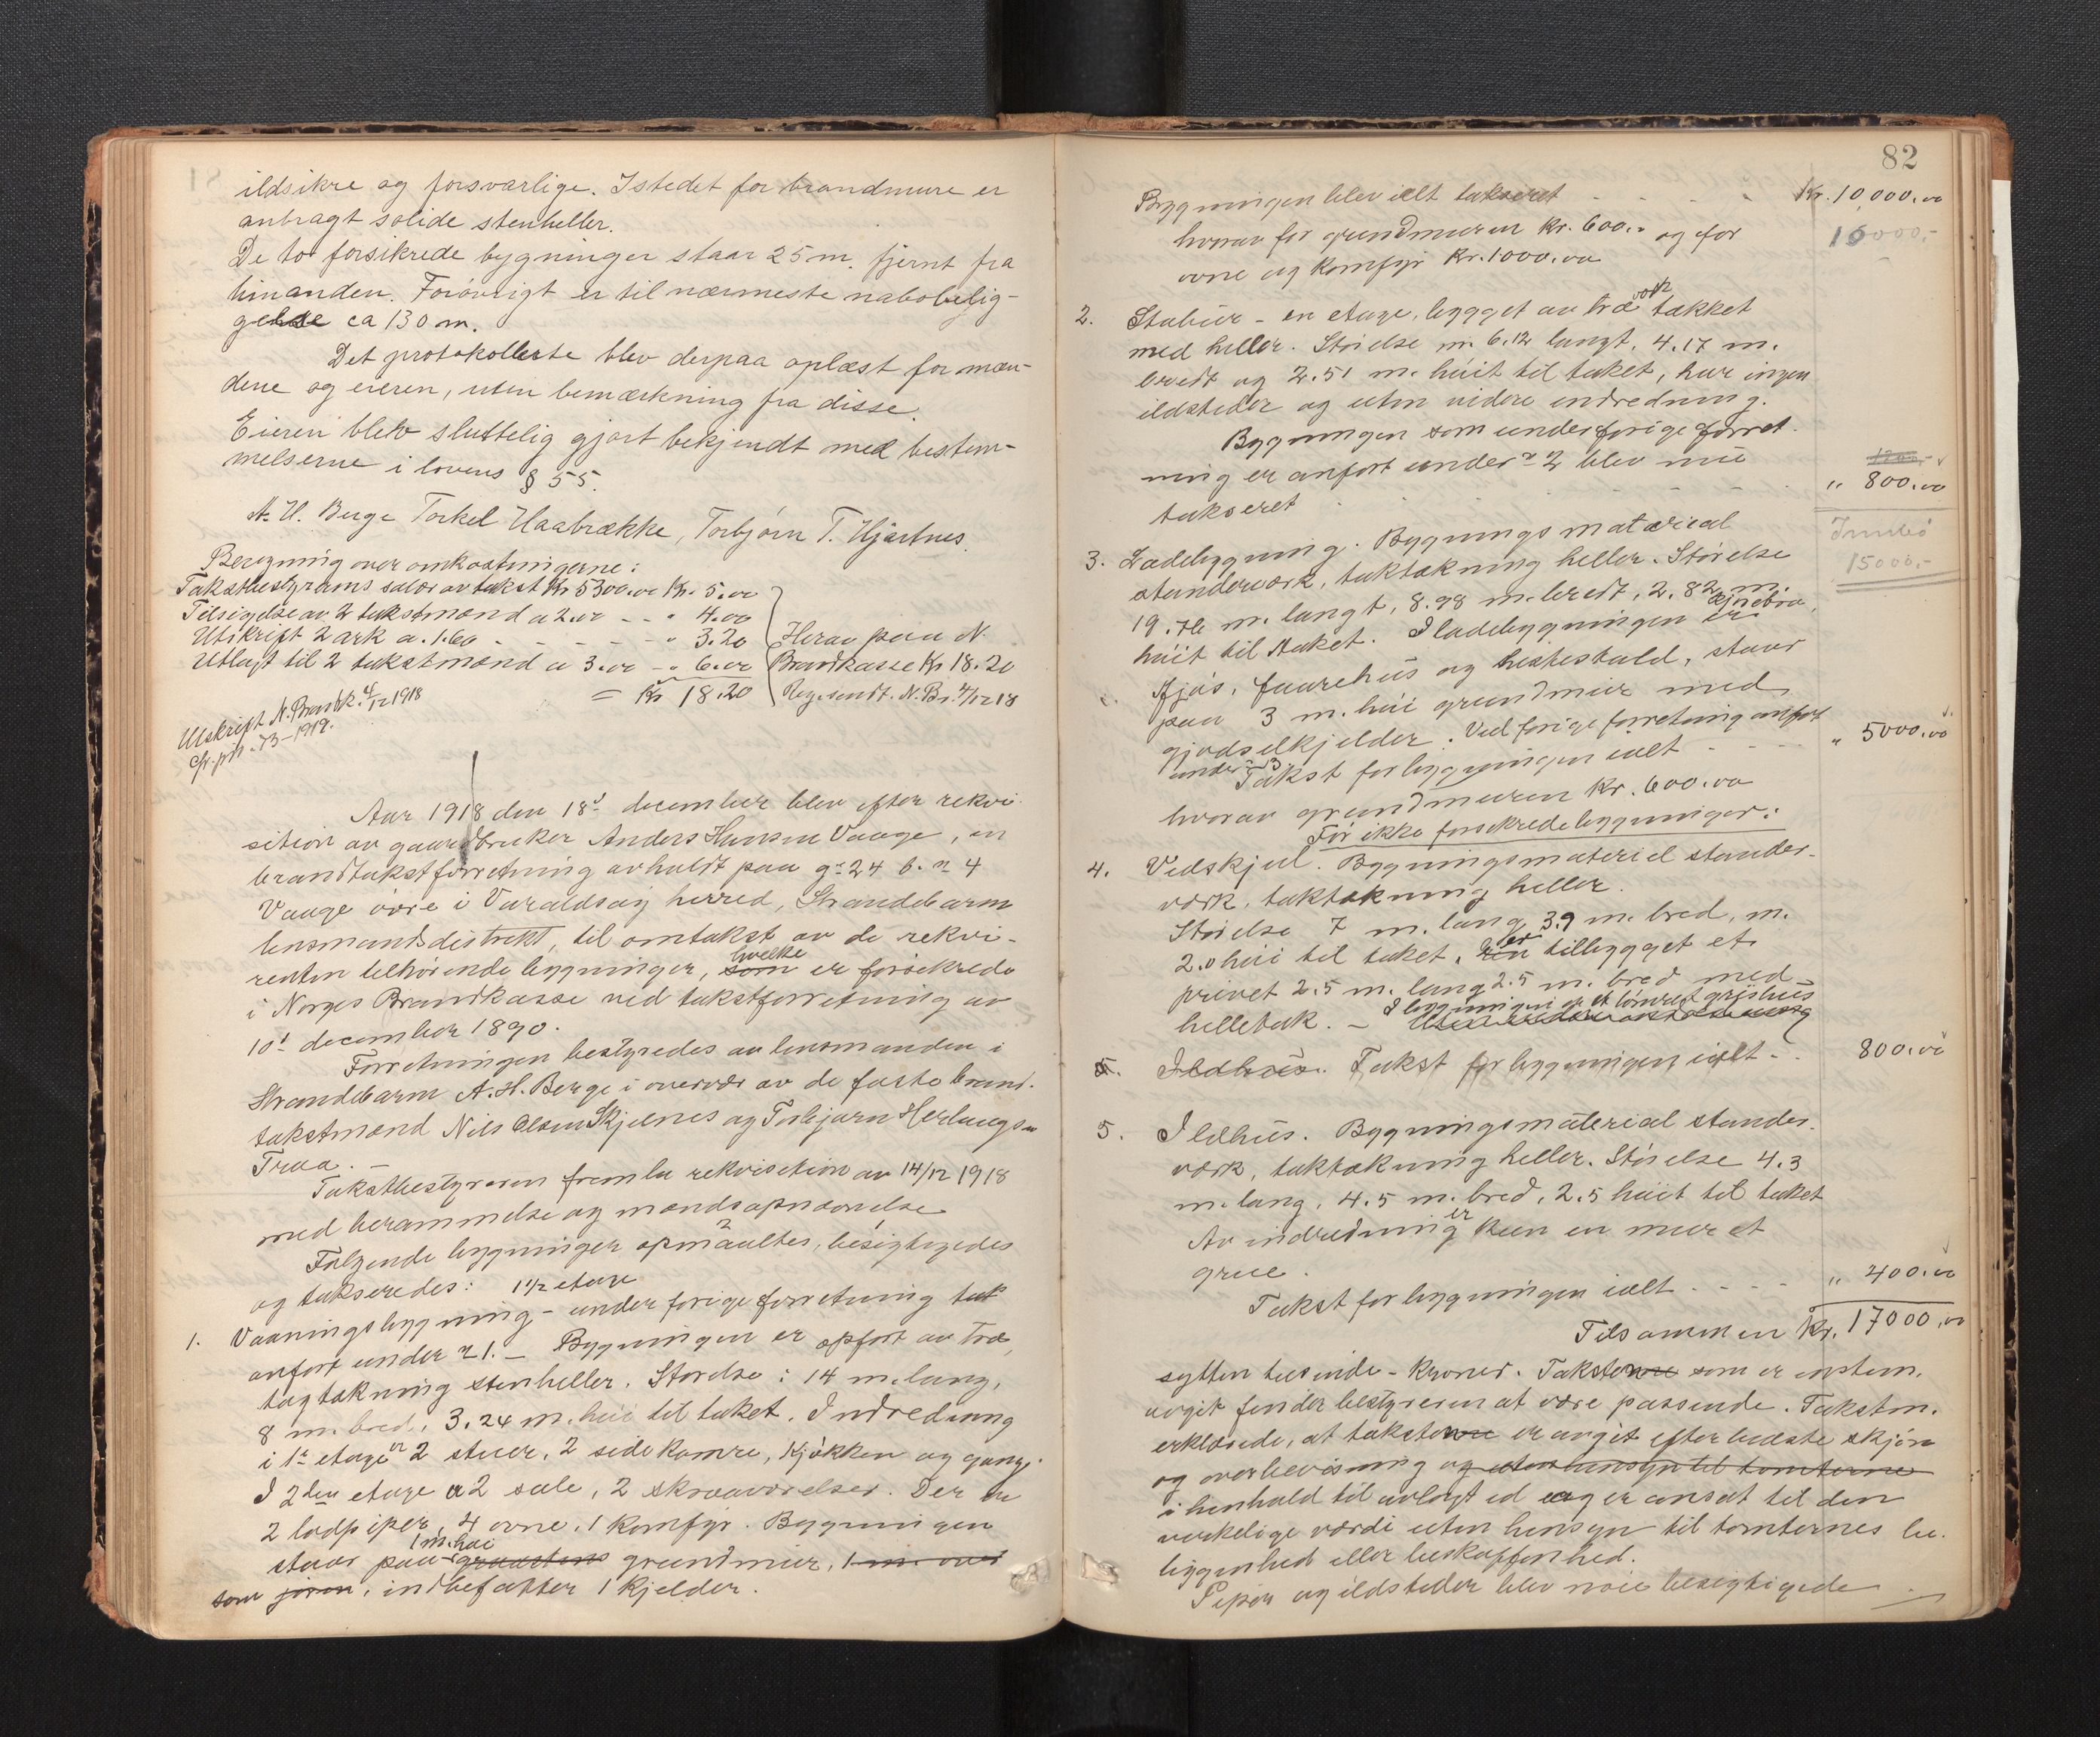 ildsikre og forsvarlige. Istedet for brandmure er
anbragt solide stenheller.
De to forsikrede bygninger staar 25 m. fjernt fra
hinanden. Forøvrigt er til nærmeste nabobelig-
gende ca 130 m.
Det protokollerte blev derpaa oplæst for mæn-
dene og eieren, uten bemærkning fra disse.
Eieren blev sluttelig gjort bekjendt med bestem-
melserne i lovens § 55.
A. H. Berge Torkel Haabrække, Torbjørn T. Hjartnes.
Beregning over omkostningerne:
Takstbestyrerens salær av takst Kr 5300.00 Kr. 5.00
Tilsigelse av 2 takstmænd a 2.00 - - " 4.00
Utskrift 2 ark a. 1.60 - - - - - " 3.20
Utlagt til 2 takstmænd a 3.00 - " 6.00
= Kr 18.20
Herav paa N.
Brandkasse Kr 18.20
Reg. sendt. N. Br. 4/12 18
Utskrift N. Brandk. 4/12 1918
73-1919.
Aar 1918 den 18d december blev efter rekvi-
sition av gaardbruker Anders Hansen Vaage, en
brandtakstforretning avholdt paa g.n 24 b.n 4
Vaage øvre i Varaldsøy herred, Strandebarm
lensmandsdistrikt, til omtakst av de rekvi-
renten tilhørende bygninger, som hvilke er forsikrede
i Norges Brandkasse ved takstforretning av
10d december 1890.
Forretningen bestyredes av lensmanden i
Strandebarm A. H. Berge i overvær av de faste brand-
takstmænd Nils Olsen Skjelnes og Torbjørn Herlaugsen
Traa. -
Takstbestyreren fremla rekvisition av 14/12 1918
med berammelse og mændsopnævnelse.
Følgende bygninger opmaaltes, besigtigedes
og takseredes: 1 1/2 etage
1. Vaaningsbygning - under forige forretning tak
anført under n 1. - Bygningen er opført av træ,
tagtækning stenheller. Størelse: 14 m. lang,
8 m. bred, 3.24 m. høi til taket. Indredning
i 1ste etage er 2 stuer, 2 sidekamre, kjøkken og gang.
I 2den etage a 2 sale, 2 skraaværelser. Der er
2 lodpiper, 4 ovne, 1 komfyr. Bygningen
staar paa 1 m. høi graastens grundmur, 1 m. over
som joren, indbefatter 1 kjelder.
82
Bygningen blev ialt taksert - - - - Kr. 10,000.00
hvorav for grundmuren Kr. 600.- og for
10000,-
ovne og komfyr Kr. 1000.00
2. Stabur - en etage, bygget av træ verk tækket
med heller. Størelse m. 6.12 langt, 4.17 m.
bredt og 2.51 m. høit til taket, har ingen
ildsteder og uten videre indredning.
Bygningen som under forige forret-
ning er anført under n 2 blev nu
taksert - - - - " 800.00
3. Ladebygning. Bygningsmatærial
stenderværk, taktækning heller. Størelse
19.76 m. langt, 8.98 m. bredt, 2.82 m.
høit til taket. I ladebygningen er
fjøs, faarehus og hestestald, staar
paa 3 m. høi grundmur med
gjødselkjelder. Ved forige forretning anført
under n 3
Takst for bygningen ialt - - - " 5000.00
hvorav grundmuren Kr. 600.00
15000,-
Før ikke forsikrede bygninger:
4. Vedskjul. Bygningsmateriel stender-
værk, taktækning heller.
Størelse 7 m. lang, 3.9 m. bred, m.
2.0 høi til taket. er tilbygget et
privet 2.5 m. lang 2.5 m. bred med
helletak. - I bygningen er et tømret grishus
5. Ildhus. Takst for bygningen ialt - - 800.00
5. Ildhus. Bygningsmaterial stender-
værk, taktækning heller. Størelse 4.3
m. lang, 4.5 m. bred, 2.5 høit til taket
Av indredning er kun en muret
grue.
Takst for bygningen ialt - - - - " 400.00
Tilsammen Kr. 17000.00
sytten tusinde - Kroner. Taksterne som er enstem.
avgit finder bestyreren at være passende. Takstm.
erklærede, at taksterne er avgit efter bedste skjøn
og overbevisning og uten hensyn til tomterne
i henhold til avlagt ed og er ansat til den
virkelige værdi uten hensyn til tomternes be-
liggenhed eller beskaffenhed.
Piper og ildsteder blev nøie besigtigede